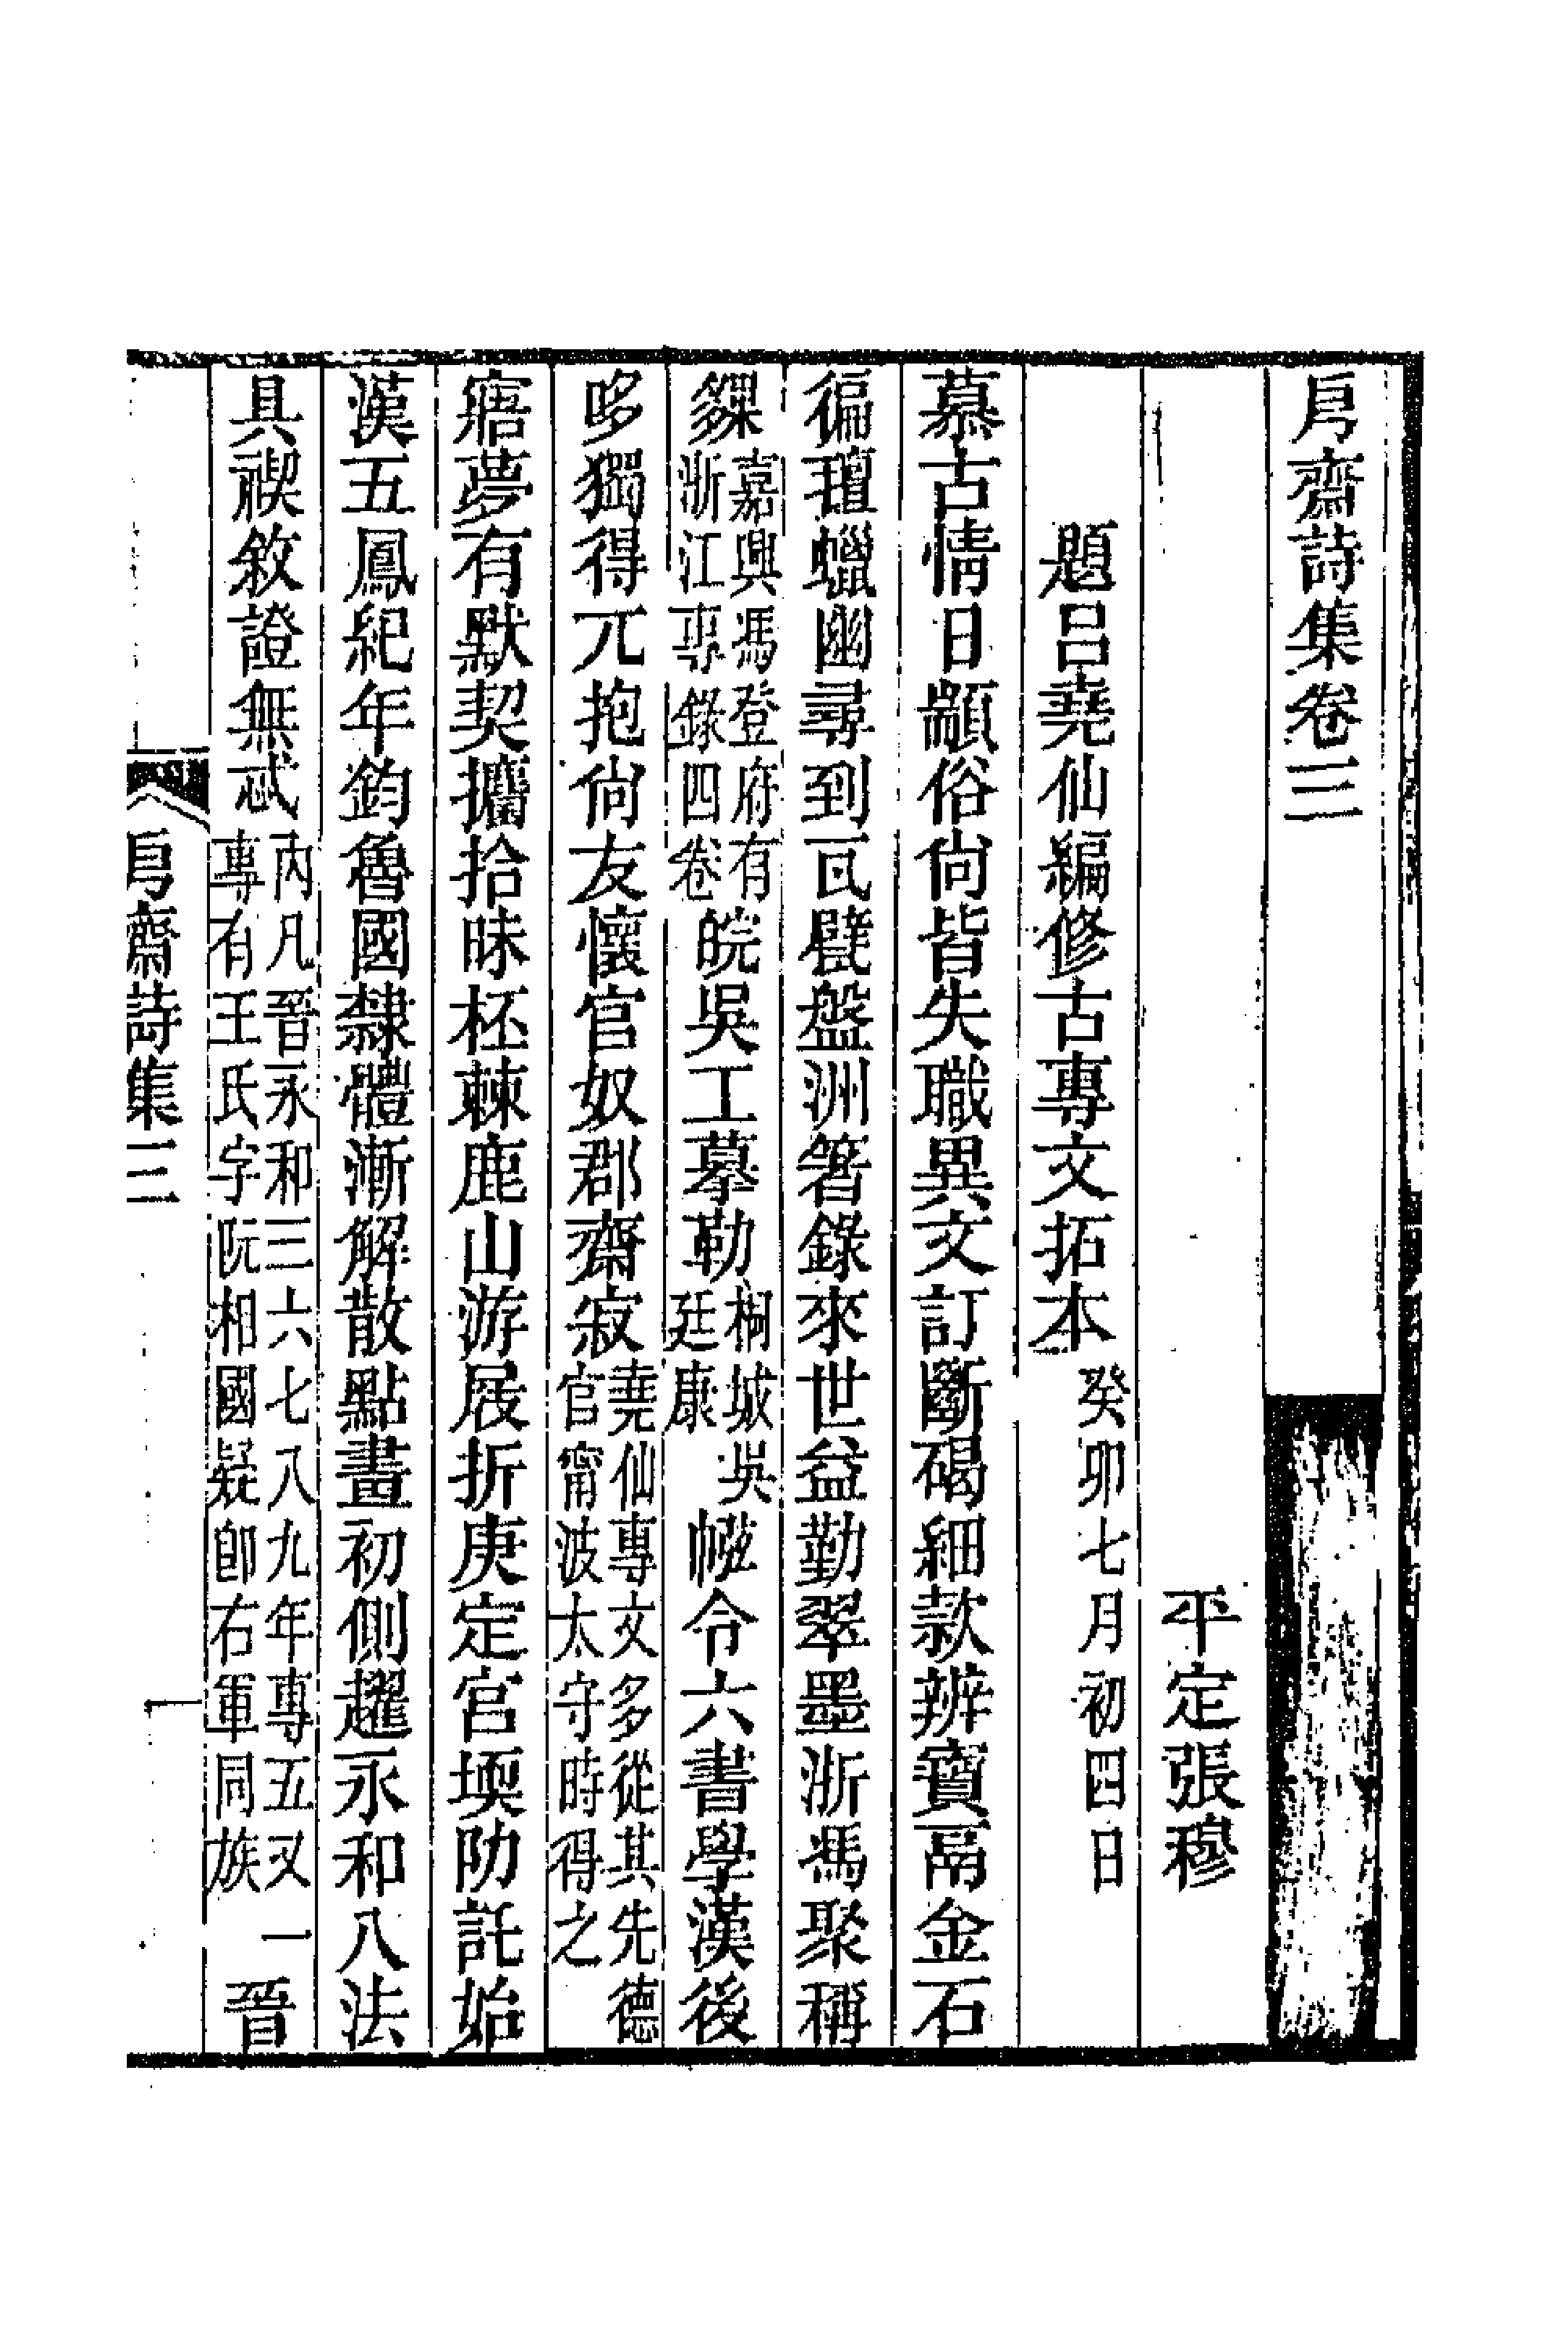 㐆齋詩集卷三
平定張穆
題呂堯仙編修古專文拓本癸卯七月初四日
慕古情日顓俗尙皆失職異文訂斷碣細款辨寶鬲金石
徧㼆蠟幽尋到瓦甓盤洲箸錄來世益勤翠墨浙馮聚稱
夥嘉興馮登府有浙江專錄四卷皖吳工摹勒桐城吳廷康㡠令六書學漢後
哆獨得兀抱尙友懷官奴郡齋寂堯仙專文多從其先德官甯波太守時得之
寤夢有默契攟拾昧柸棘鹿山游屐折庚定官堧阞託始
漢五鳳紀年鈞魯國隸體漸解散點畫初側趯永和八法
具禊敘證無忒丙凡晉永和三六七八九年專五又一專有王氏字阮相國疑卽右軍同族晉
㐆齋詩集三
一